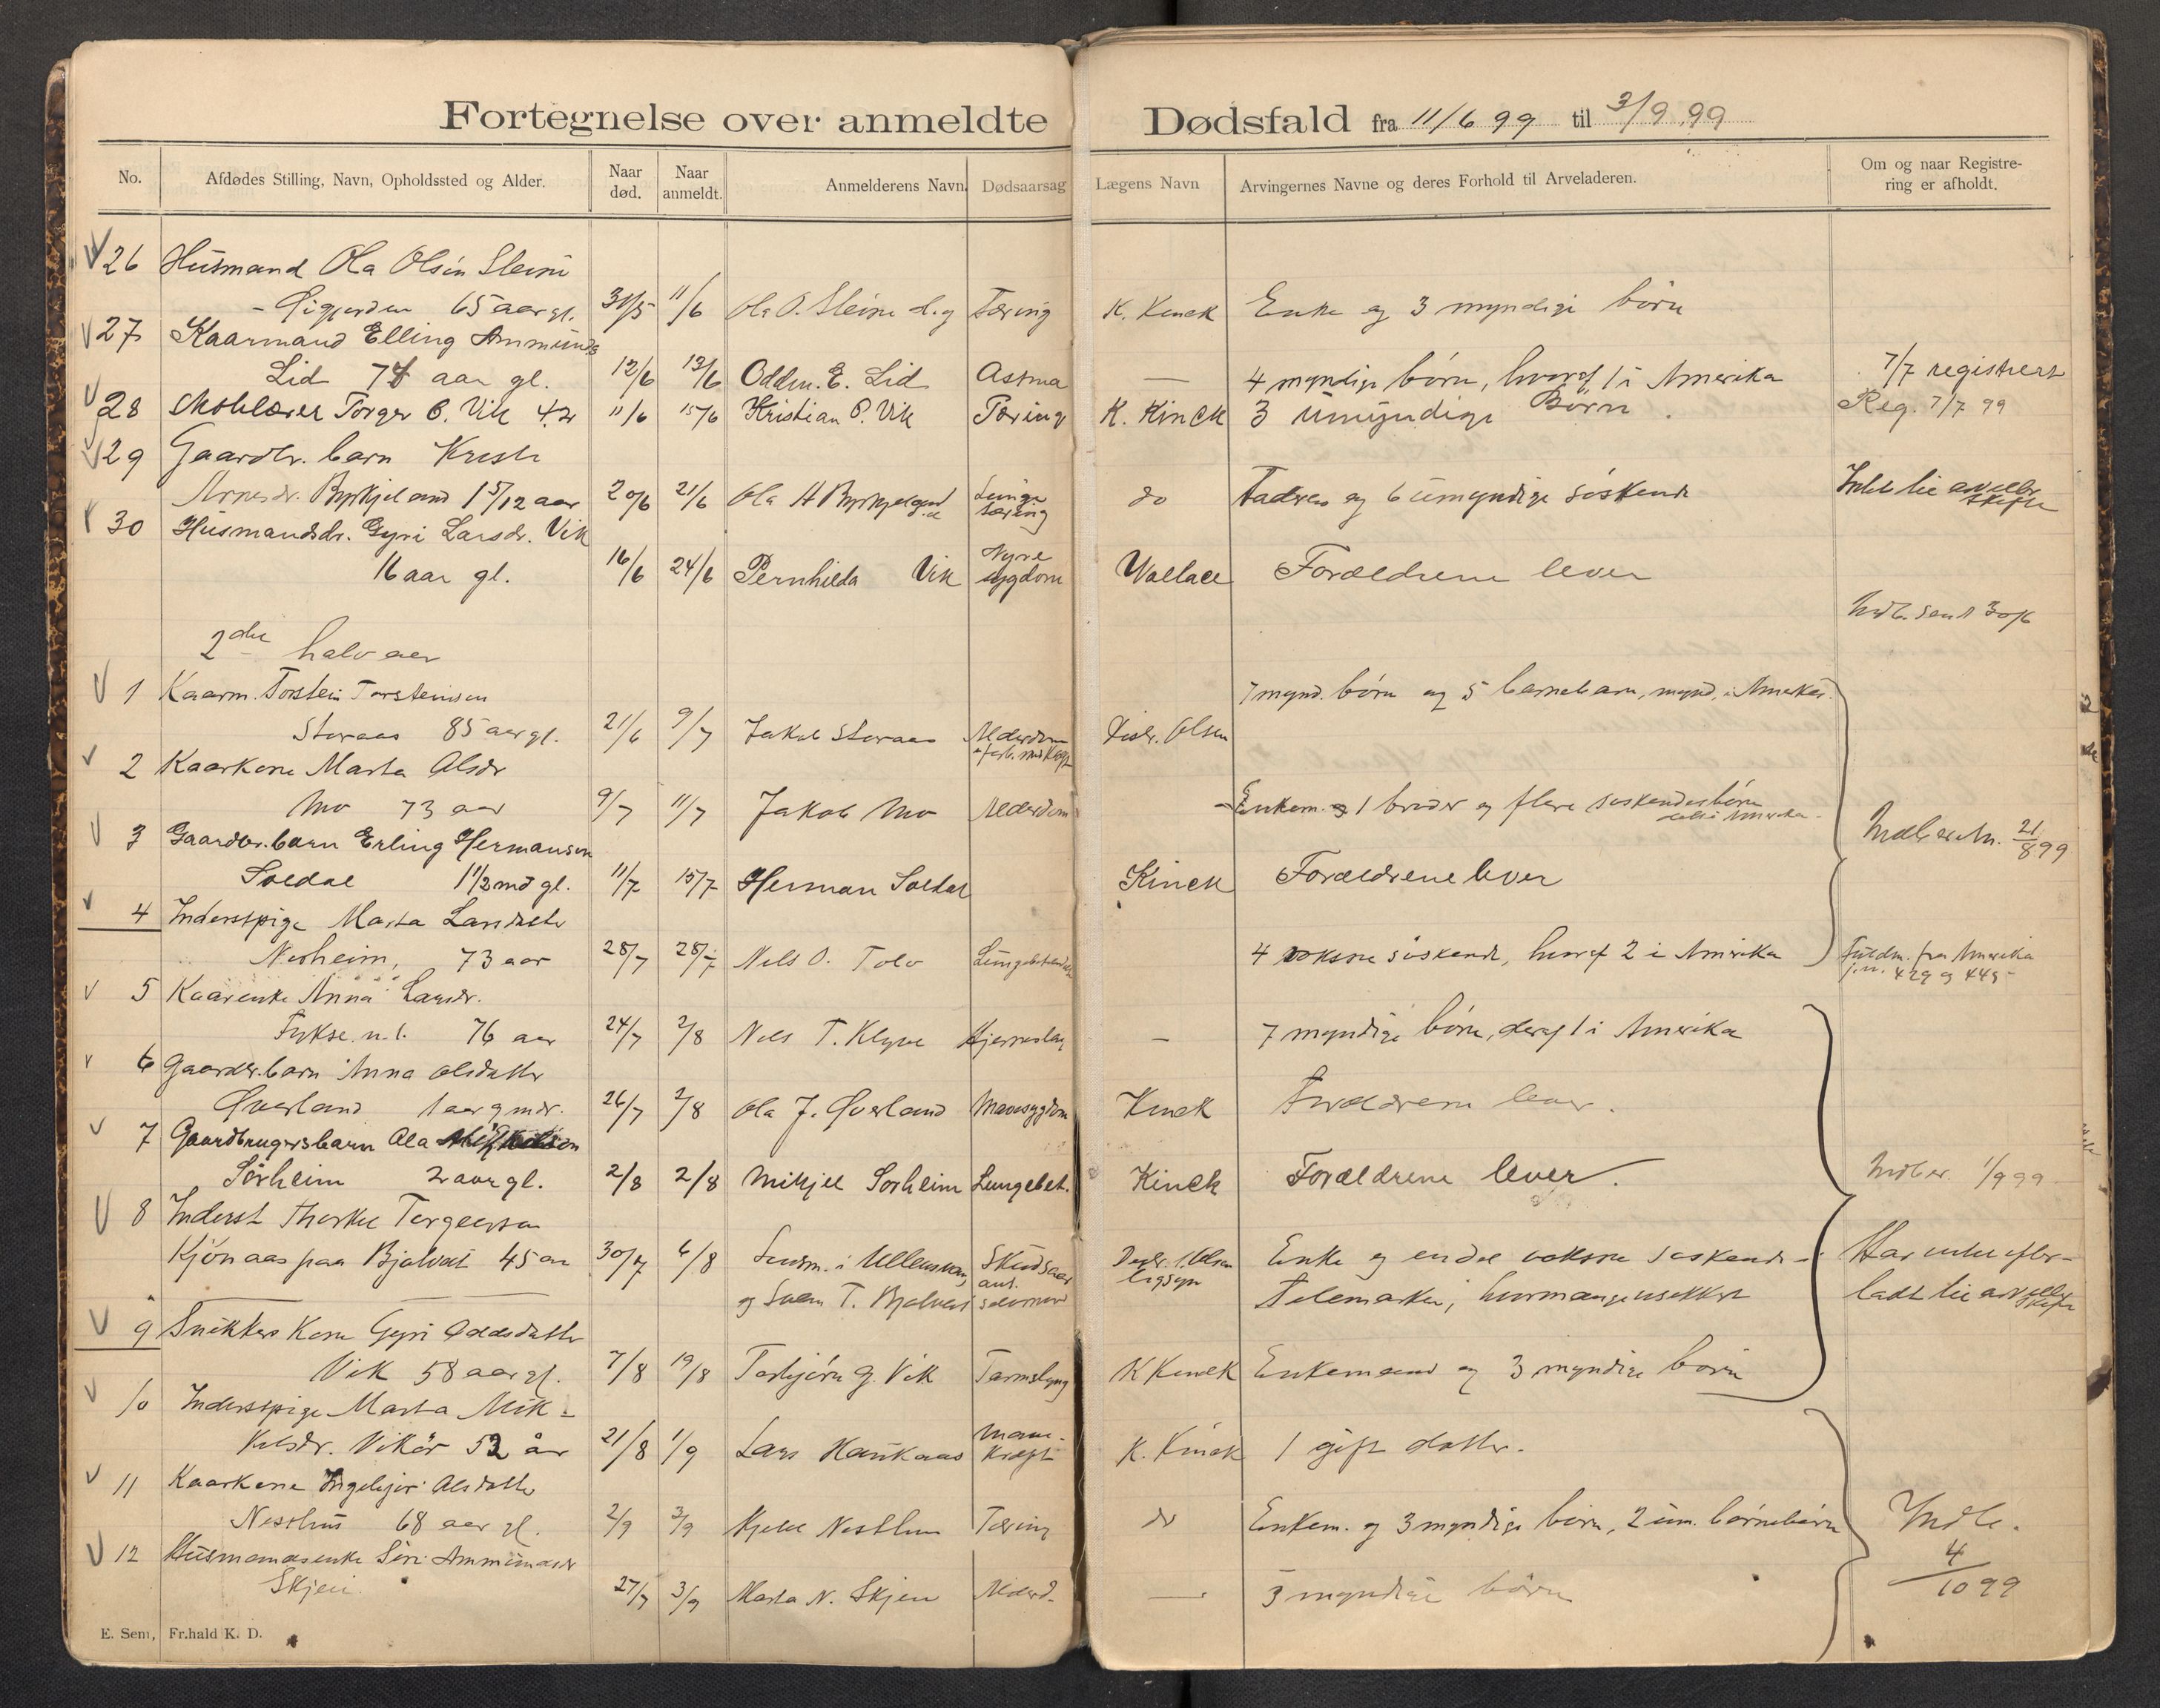 Fortegnelse over anmeldte Dødsfald fra 11/6 99 til 3/9 99
No. Afdødes Stilling, Navn, Opholdssted og Alder. Naar død. Naar anmeldt. Anmelderens Navn. Dødsaarsag Lægens Navn Arvingernes Navne og deres Forhold til Arveladeren. Om og naar Registrering er afholdt.
26 Husmand Ola Olsen Steine
65 aar gl. 31/5 11/6 Ola O. Steine Tæring K. Kinck Enke og 3 myndige börn
27 Kaarmand Elling Ammunds
Lid 74 aar gl. 12/6 13/6 Oddm. E. Lid Astma — 4 myndige börn, hvoraf 1 i Amerika 7/7 registrert
28 Torger O. Vik 42 11/6 15/6 Kristian O. Vik Tæring K. Kinck 3 umyndige Börn. Reg. 7/7 99
29 Gaardbr. barn Kristi
Arnesdr. Byrkjeland 1 5/12 aar 20/6 21/6 Ola A Byrkjeland Lunge tæring do Faderen og 6 umyndige söskende
30 Husmandsdr. Gyri Larsdr. Vik
16 aar gl. 16/6 24/6 Pernhilda Vik Nyre sygdom Wallace Forældrene lever
Indb. sendt 30/6
2det halvaar
1 Kaarm. Torstein Torsteinsen 7 mynd. börn og 5 barnebarn, mynd, i Amerika
Storaas 85 aar gl. 21/6 9/7 Jakob Storaas Alderdom Distr. Olsen
2 Kaarkone Marta Olsdr
Mo 73 aar 9/7 11/7 Jakob Mo Alderdom Enkem. og 1 broder og flere söskendebörn
3 Gaardbr. barn Erling Hermansen Indberettn. 21/8 99
Soldal 1 1/2 md gl. 11/7 15/7 Herman Soldal Kinck Forældrene lever
4 Inderstpige Marta Larsdatter
Nesheim, 73 aar 28/7 28/7 Nils O. Tolo 4 voksne söskende, hvoraf 2 i Amerika Fuldm. fra Amerika
j.n. 429 og 445
5 Kaarenke Anna Larsdr.
Fykse n.l. 76 aar 24/7 2/8 Nils T. Klyve Hjerneslag — 7 myndige börn, deraf 1 i Amerika
6 Gaardbr. barn Anna Olsdatter
Qverland 1 aar 9 mdr. 26/7 2/8 Ola J. Qverland Mavesygdom Kinck Forældrene lever.
7 Gaardbrugersbarn Ola
Sörheim 2 aar gl. 2/8 2/8 Mikjel Sörheim Lungebet. Kinck Forældrene lever. Indber. 1/9 99
8 Inderst Thorkel Torgeirsen
Kjönaas paa Bjolvet 45 aar 30/7 6/8 Lensm. i Ullensvang Skudsaar Enke og endel voksne söskende i Har intet efter-
og Svein T. ant. selvmord Ligsyn Telemarken, hvormange usikkert ladt til arv eller skifte
9 Snikkers Kone Gyri Oddsdatter
Vik 58 aar gl. 7/8 19/8 Torbjörn G. Vik Tarmslyng K Kinck Enkemand og 3 myndige börn
10 Inderstpige Marta Mik-
kelsdr. Vikör 52 år 21/8 1/9 Lars Haukaas Mavekræft K. Kinck 1 gift datter.
11 Kaarkone Ingebjör Olsdatter
Nesthus 68 aar gl. 2/9 3/9 Kjetil Nesthus Tæring do Enkem. og 3 myndige börn, 2 um. börnebörn Indb.
12 Husmandsenke Siri Ammundsdr 4/10 99
Skjeie. 27/7 3/9 Marta N. Skjeie Alderd. — 3 myndige börn
E. Sem, Fr.hald K. D.